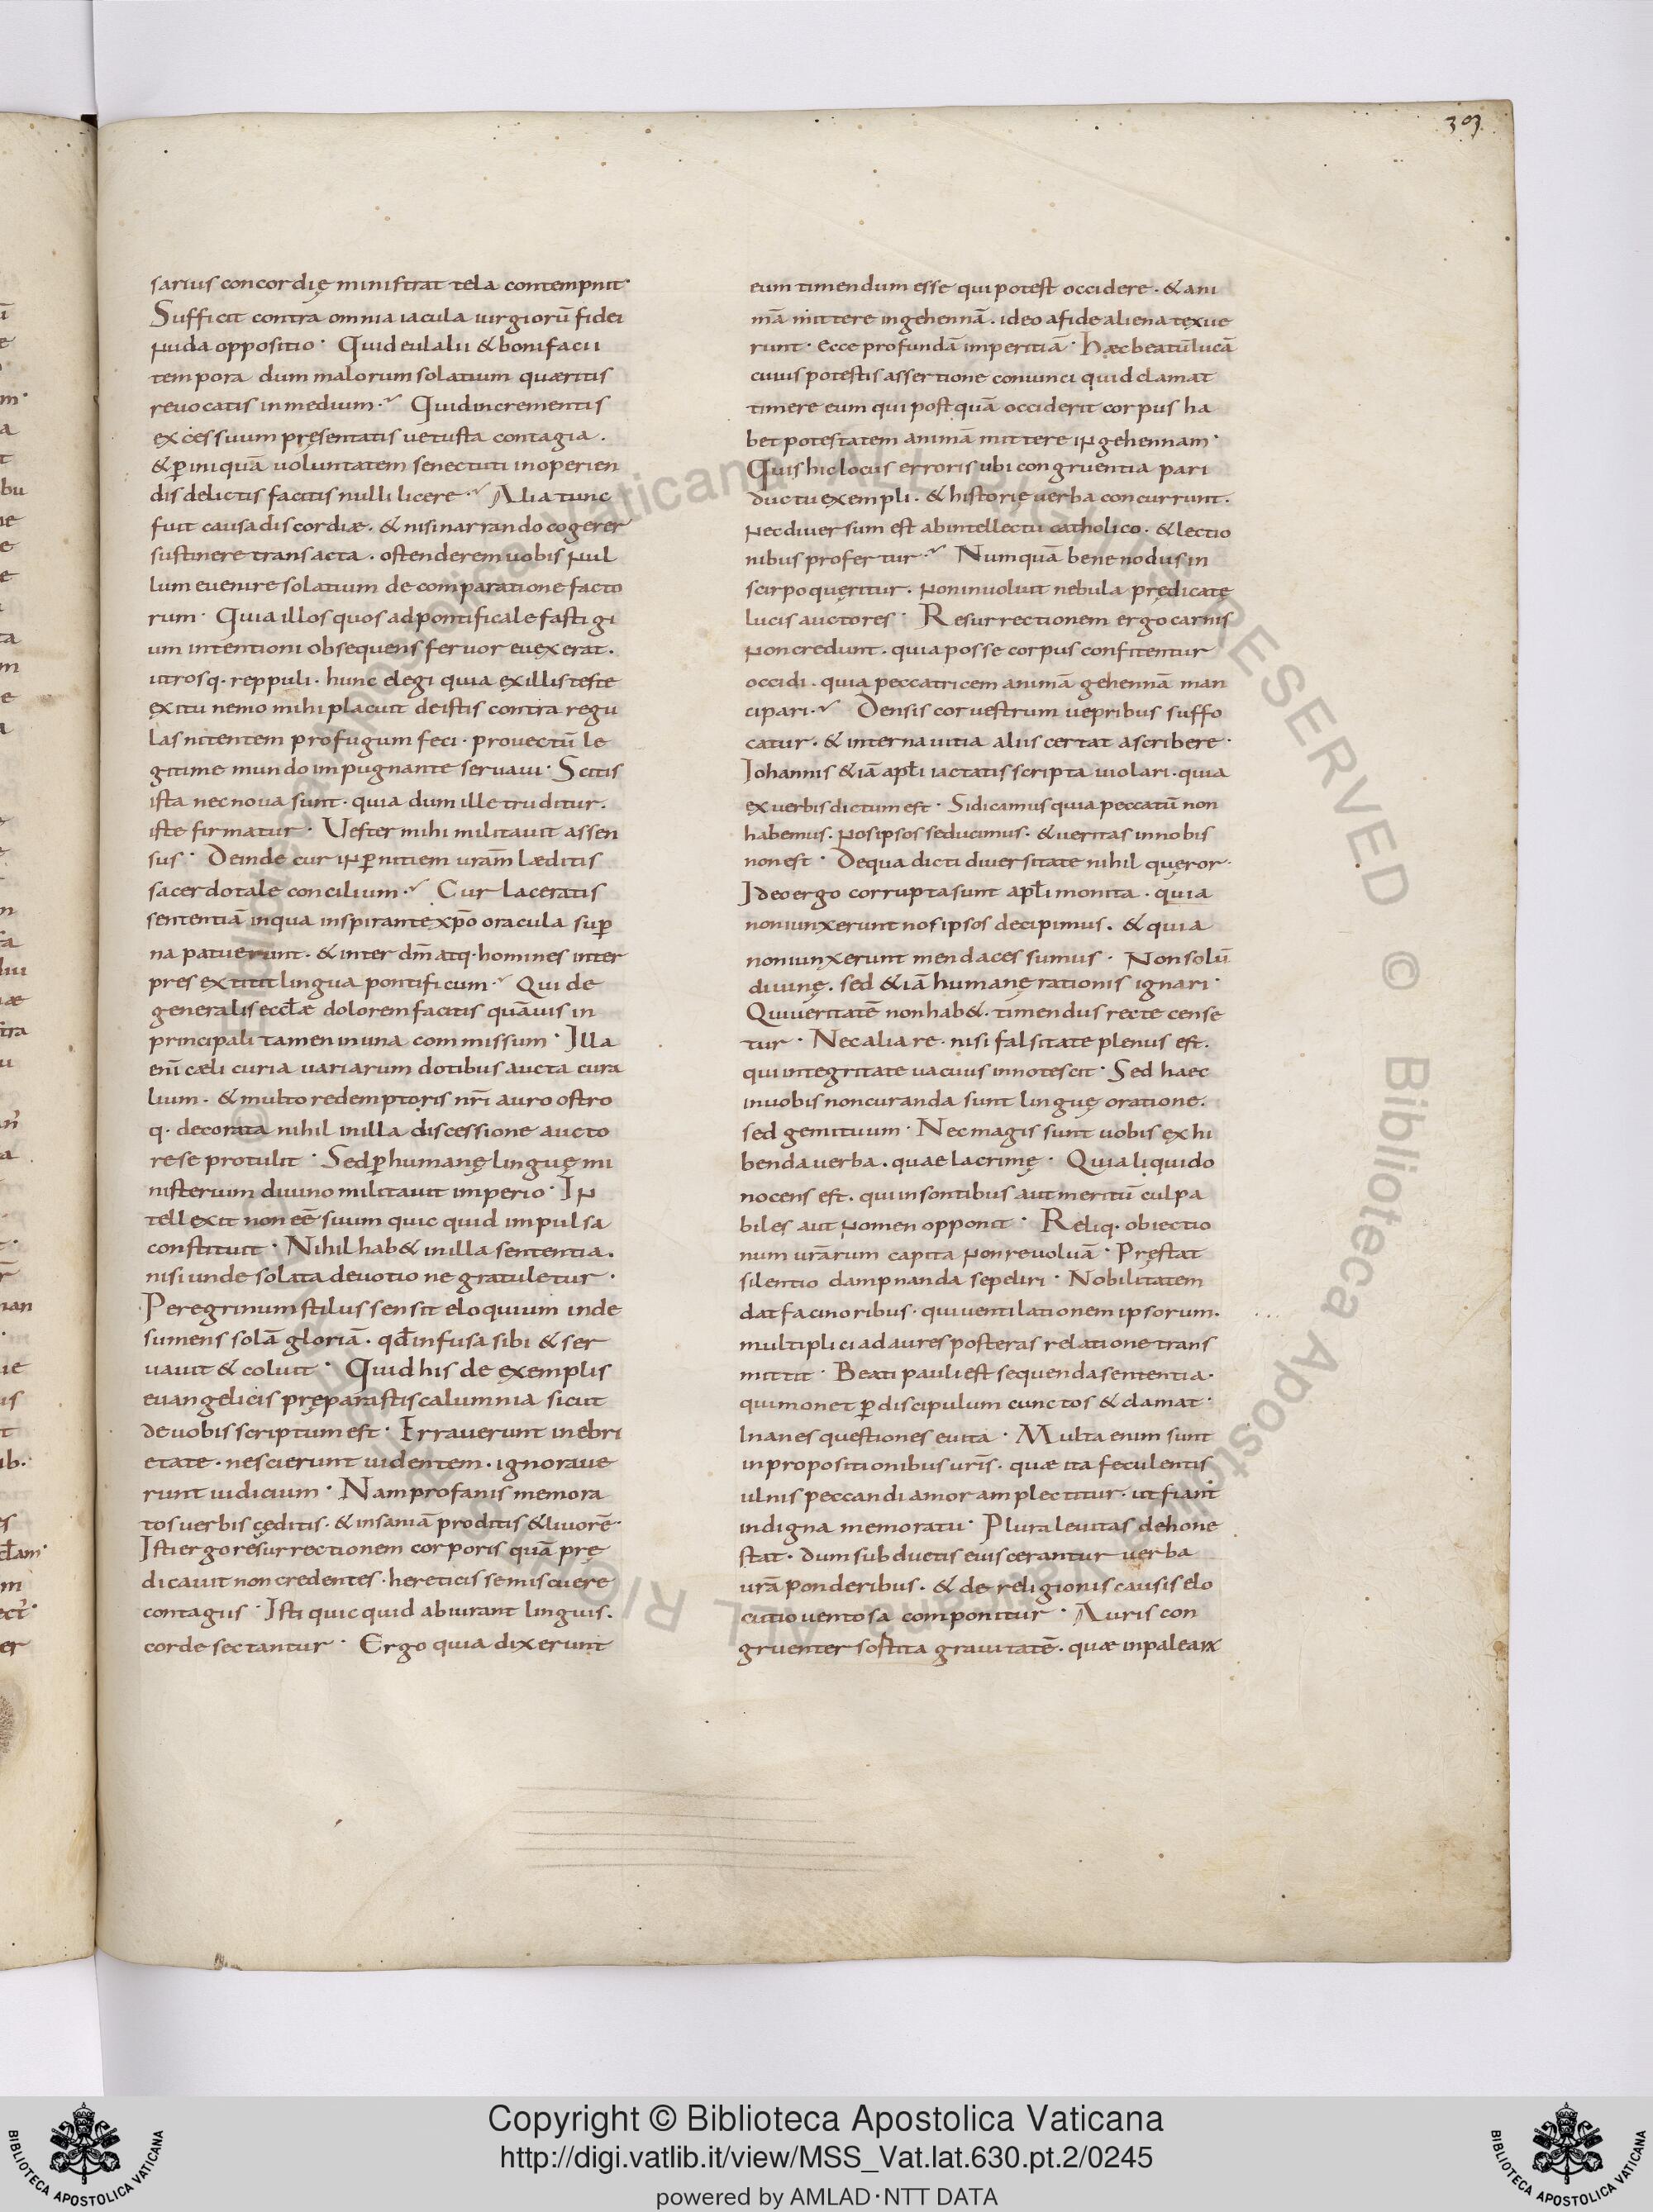 303
sarius concordię ministrat tela contempnit·
Sufficit contra omnia iacula iurgiorū fidei
nuda oppositio· Quid eulalii & bonifacii
tempora dum malorum solatium quæritis
reuocatis in medium·? Quid incrementis
excessuum pręsentatis uetusta contagia.
& ꝑ iniquā uoluntatem senectuti inoperien
dis delictis facitis nulli licere·? Alia tunc
fuit causa discordiæ. & nisi narrando cogerer
sustinere transacta. ostenderem uobis nul
lum euenire solatium de comparatione facto
rum· Quia illos quos ad pontificale fastigi
um intentioni obsequens feruor euexerat.
utrosq· reppuli. hunc elegi quia ex illis teste
exitu nemo mihi placuit de istis contra regu
las nitentem profugum feci· prouectū le
gitime mundo impugnante seruaui· Scitis
ista nec noua sunt. quia dum ille truditur.
iste firmatur· Uester mihi militauit assen
sus· Deinde cur in ꝑnitiem urām læditis
sacerdotale concilium·? Cur laceratis
sententiā in qua inspirante xp̄o oracula suꝑ
na patuerunt. & inter dm̄ atq· homines inter
pres extitit lingua pontificum·? Qui de
generalis eccłæ dolorem facitis quāuis in
principali tamen in una commissum· Illa
eni̅ cæli curia uariarum dotibus aucta cura
lium. & multo redemptoris nr̄i auro ostro
q· decorata nihil in illa discessione aucto
re se protulit· Sed ꝑ humanę linguę mi
nisterium diuino militauit imperio· In
tellexit non ee̅ suum quicquid impulsa
constituit· Nihil hab& in illa sententia.
nisi unde solata deuotio ne gratuletur·
Peregrinum stilus sensit eloquium inde
sumens solā gloriā. qđ infusa sibi & ser
uauit & coluit· Quid his de exemplis
euangelicis pręparastis calumnia sicut
de uobis scriptum est· Errauerunt in ebri
etate. nescierunt uidentem. ignoraue
runt iudicium· Nam profanis memora
tos uerbis cęditis. & insaniā proditis & liuorē·
Isti ergo resurrectionem corporis quā prę
dicauit non credentes. hereticis se miscuere
contagiis· Isti quicquid abiurant linguis.
corde sectantur· Ergo quia dixerunt
eum timendum esse qui potest occidere. & ani
mā mittere in gehennā. ideo a fide aliena texue
runt· Ecce profundā imperitiā· Hæc beatū lucā
cuius potestis assertione conuinci quid clamat
timere eum qui postquā occiderit corpus ha
bet potestatem animā mittere in gehennam·
Quis hic locus erroris ubi congruentia pari
ductu exempli. & historię uerba concurrunt.
nec diuersum est ab intellectu catholico. & lectio
nibus profertur·? Numquā bene nodus in
scirpo quęritur. non inuoluit nebula prędicatę
lucis auctores· Resurrectionem ergo carnis
non credunt. quia posse corpus confitentur
occidi. quia peccatricem animā gehennā man
cipari·? Densis cor uestrum uepribus suffo
catur. & interna uitia aliis certat ascribere·
Iohannis & iā apłi iactatis scripta uiolari. quia
ex uerbis dictum est· Si dicamus quia peccatū non
habemus. nos ipsos seducimus. & ueritas in nobis
non est· De qua dicti diuersitate nihil quęror·
Ideo ergo corrupta sunt apłi monita. quia
non iunxerunt nos ipsos decipimus. & quia
non iunxerunt mendaces sumus· Non solū
diuinę. sed & iā humanę rationis ignari·
Qui ueritatē non hab&. timendus recte cense
tur· Nec alia re. nisi falsitate plenus est.
qui integritate uacuus innotescit· Sed haec
in uobis non curanda sunt linguę oratione.
sed gemituum· Nec magis sunt uobis exhi
benda uerba. quae lacrimę· Quia liquido
nocens est. qui insontibus aut meritū culpa
biles aut nomen opponit· Reliq· obiectio
num urārum capita non reuoluā· Pręstat
silentio dampnanda sepeliri· Nobilitatem
dat facinoribus. qui uentilationem ipsorum.
multiplici ad aures posteras relatione trans
mittit· Beati pauli est sequenda sententia.
qui monet ꝑ discipulum cunctos & clamat·
Inanes questiones euita· Multa enim sunt
in propositionibus uris̅. quæ ita feculentis
ulnis peccandi amor amplectitur. ut fiant
indigna memoratu· Plura leuitas dehone
stat. dum subductis euiscerantur uerba
urā ponderibus. & de religionis causis elo
cutio uentosa componitur· Auris con
gruenter sortita grauitatē. quæ in palearū
Copyright © Biblioteca Apostolica Vaticana
http://digi.vatlib.it/view/MSS_Vat.lat.630.pt.2/0245
powered by AMLAD·NTT DATA
BIBLIOTECA APOSTOLICA VATICANA
BIBLIOTECA APOSTOLICA VATICANA